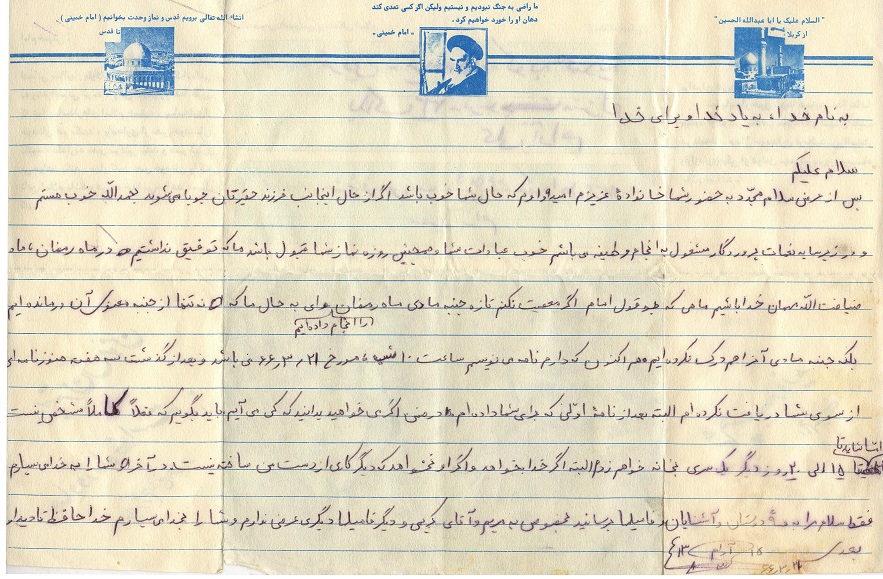 ما راضی به جنگ نبودیم و نیستیم ولیکن اگر کسی تعدی کند
دهان او را خورد خواهیم کرد.
- امام خمینی -
" السلام علیک یا ابا عبدالله الحسین "
از کربلا
انشاءالله تعالی برویم قدس و نماز وحدت بخوانیم ( امام خمینی )
تا قدس
به نام خدا، به یاد خدا و برای خدا
سلام علیکم
پس از عرض سلام مجدد به حضور شما خانواده عزیزم امیدوارم که حال شما خوب باشد اگر از حال اینجانب فرزند حقیرتان جویا می‌شوید بحمدالله خوب هستم
و در زیر سایه نعمات پروردگار مشغول به انجام وظیفه می باشم خوب عبادات شما و همچنین روزه نماز شما قبول باشد ما که توفیق نداشتیم که در ماه رمضان، ماه
ضیافت الله مهمان خدا باشیم ما که طبق قول امام اگر نکنم تازه جنبه مادی ماه رمضان را انجام داده‌ایم وای به حال ما که نه تنها از جنبه معنوی آن درمانده ایم
بلکه جنبه مادی آنرا هم درک نکرده ایم هم اکنون که دارم نامه می نویسم ساعت ۱۰ شب، مورخ ۶۶٫۳٫۲۱ می باشد و بعد از گذشت سه هفته هنوز نامه ای
از سوی شما دریافت نکرده ام البته بعد از نامه اولی که برای شما داده ام در ضمن اگر می خواهید بدانید که کی می آیم باید بگویم که فعلاً کاملاً مشخص نیست
انشاء شاید تا
۱۵ الی ۲۰ روز دیگر یک سری بخانه خواهم زد البته اگر خدا بخواهد و اگر او نخواهد که دیگر کاری از دست من ساخته نیست. در آخر شما را به خدا می سپارم
فقط سلام مرا به همه دوستان و آشنایان و فامیلها برسانید بخصوص به مریم و آقای کریمی و دیگر فامیلها دیگر عرضی ندارم و شما را بخدای می سپارم خداحافظ تا دیدار
بعدی
۶۶٫۳٫۲۱